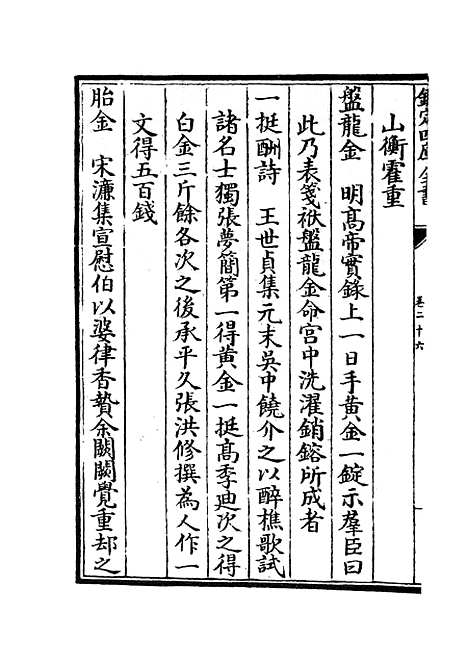 欽定四庫全書
卷二十六
山衡霍重
盤龍金　明髙帝實錄上一日手黄金一錠示羣臣曰
此乃表箋袱盤龍金命宫中洗濯銷鎔所成者
一挺酬詩　王世貞集元末吳中饒介之以醉樵歌試
諸名士獨張夢簡第一得黄金一挺髙季迪次之得
白金三斤餘各次之後承平久張洪修撰為人作一
文得五百錢
胎金　宋濂集宣慰伯以婆律香贄余闕闕覺重却之